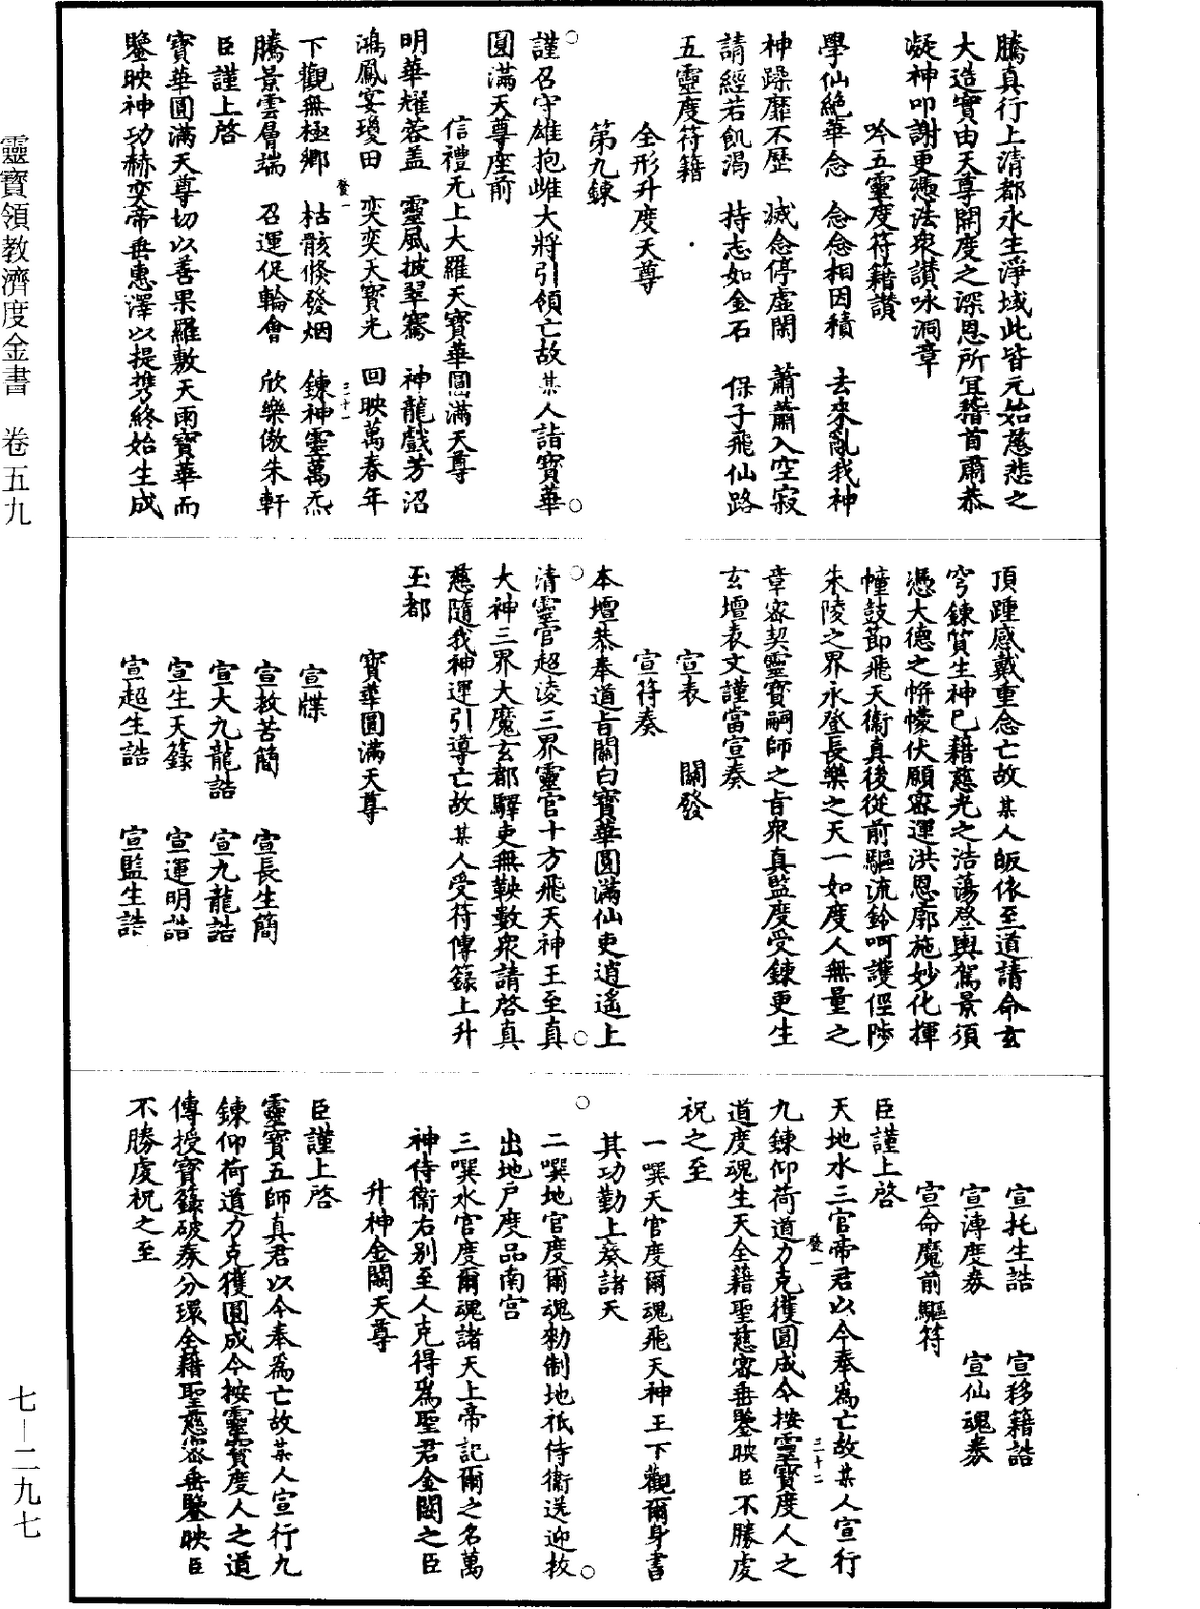 騰真行上清都永生淨域此皆元始慈悲之
大造實由天尊開度之深恩所冝稽首肅恭
凝神叩謝更憑法衆讃咏洞章
吟五靈度符籍讃
學仙絶華念　念念相因積　去來亂我神
神躁靡不歷　滅念停虛閑　蕭蕭入空寂
請經若飢渴　持志如金石　保子飛仙路
五靈度符籍
全形升度天尊
第九鍊
謹召守雄抱雌大將引領亡故某人詣寶華
圓滿天尊座前
信禮无上大羅天寶華圓滿天尊
明華耀蓉盖　靈風披翠騫　神龍戲芳沼
鴻鳳宴瓊田　奕奕天寶光　回映萬春年
下觀無極鄉　枯骸倏發烟　鍊神靈萬炁
騰景雲層端　召運促輪會　欣樂傲朱軒
臣謹上啓
寶華圓滿天尊切以善果羅敷天雨寶華而
鑒映神功赫奕帝垂惠澤以提携終始生成
頂踵感戴重念亡故某人皈依至道請命玄
穹鍊質生神巳藉慈光之浩蕩登輿駕景須
憑大德之帡幪伏願密運洪恩廓施妙化揮
幢鼓節飛天衞真後從前驅流鈴呵護徑陟
朱陵之界永登長樂之天一如度人無量之
章密契靈寶嗣師之旨衆真監度受鍊更生
玄壇表文謹當宣奏
宣表　關發
宣符奏
本壇恭奉道旨關白寶華圓滿仙吏逍遙上
清靈官超淩三界靈官十方飛天神王至真
大神三界大魔玄都驛吏無鞅數衆請啓真
慈隨我神運引導亡故某人受符傳籙上升
玉都
寶華圓滿天尊
宣牒
宣救苦簡　宣長生簡
宣大九龍誥　宣九龍誥
宣生天籙　宣運明誥
宣超生誥　宣監生誥
宣托生誥　宣移籍誥
宣溥度券　宣仙魂券
宣命魔前驅符
臣謹上啓
天地水三官帝君以今奉爲亡故某人宣行
九鍊仰荷道力克獲圓成今按靈寶度人之
道度魂生天全藉聖慈密垂鑒映臣不勝虔
祝之至
一噀天官度爾魂飛天神王下觀爾身書
其功勤上奏諸天
二噀地官度爾魂勑制地祇侍衞送迎拔
出地戶度品南宮
三噀水官度爾魂諸天上帝記爾之名萬
神侍衞右別至人克得爲聖君金闕之臣
升神金闕天尊
臣謹上啓
靈寶五師真君以今奉爲亡故某人宣行九
鍊仰荷道力克獲圓成今按靈寶度人之道
傳授寶籙破券分環全藉聖慈密垂鑒映臣
不勝虔祝之至
靈寶領教濟度金書　卷五九
七—二九七